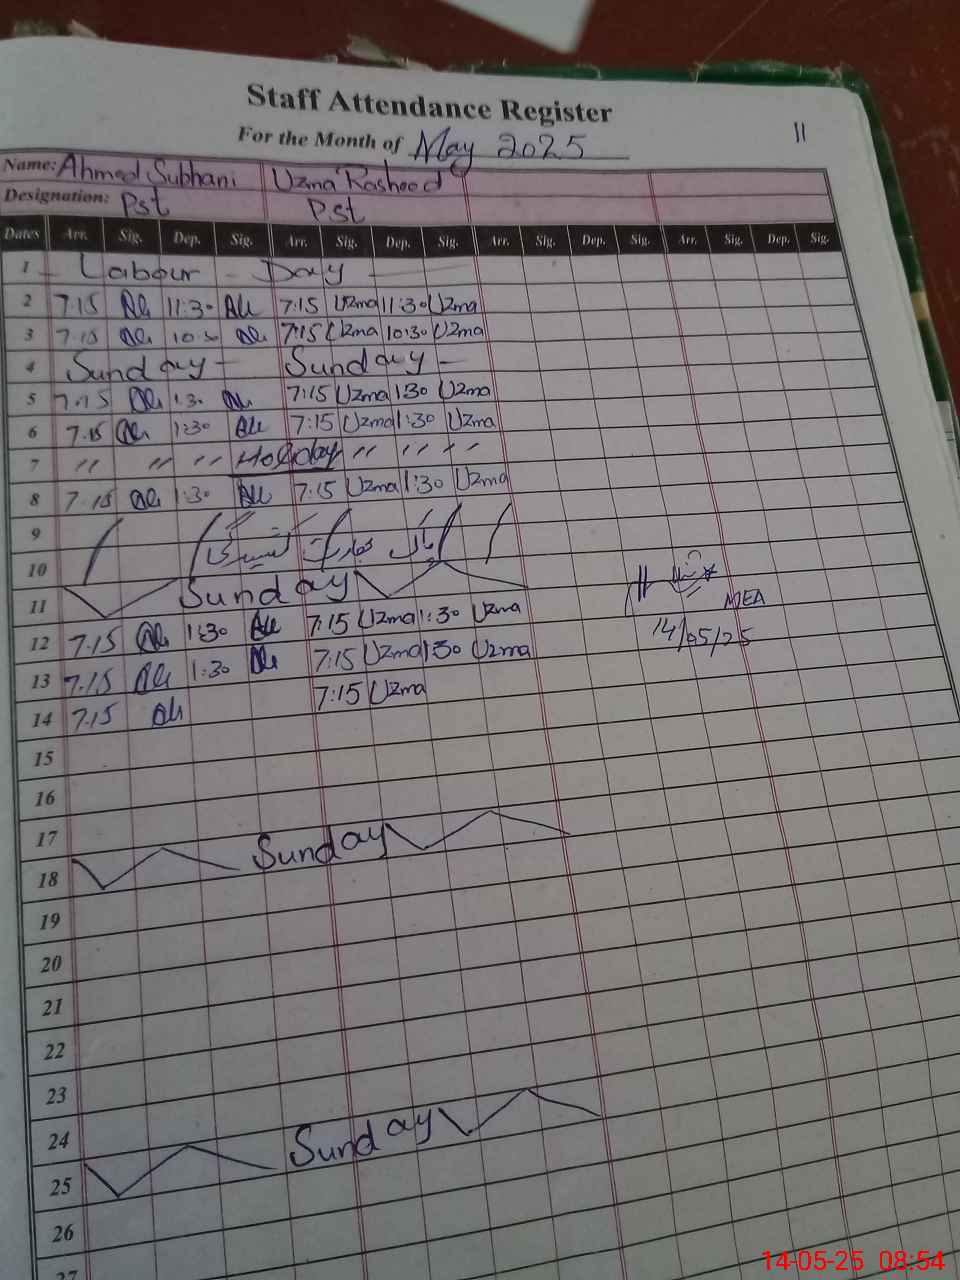 Staff Attendance Register
11
For the Month of May 2025
Name: Ahmed Subhani Uzma Rasheed
Designation: Pst Pst
Dates Arr. Sig. Dep. Sig. Arr. Sig. Dep. Sig. Arr. Sig. Dep. Sig. Arr. Sig. Dep. Sig.
1 Labour Day
2 7.15 11:30 7:15 Uzma 11:30 Uzma
3 7.15 10:30 7:15 Uzma 10:30 Uzma
4 Sunday Sunday
5 7.15 1:30 7:15 Uzma 1:30 Uzma
6 7.15 1:30 7:15 Uzma 1:30 Uzma
7 " " " Holiday " " " " "
8 7.15 1:30 7:15 Uzma 1:30 Uzma
9
10
11 Sunday
12 7.15 1:30 7:15 Uzma 1:30 Uzma
MEA
14/05/25
13 7.15 1:30 7:15 Uzma 1:30 Uzma
14 7.15 7:15 Uzma
15
16
17
18 Sunday
19
20
21
22
23
24
25 Sunday
26
27
14-05-25 08:54